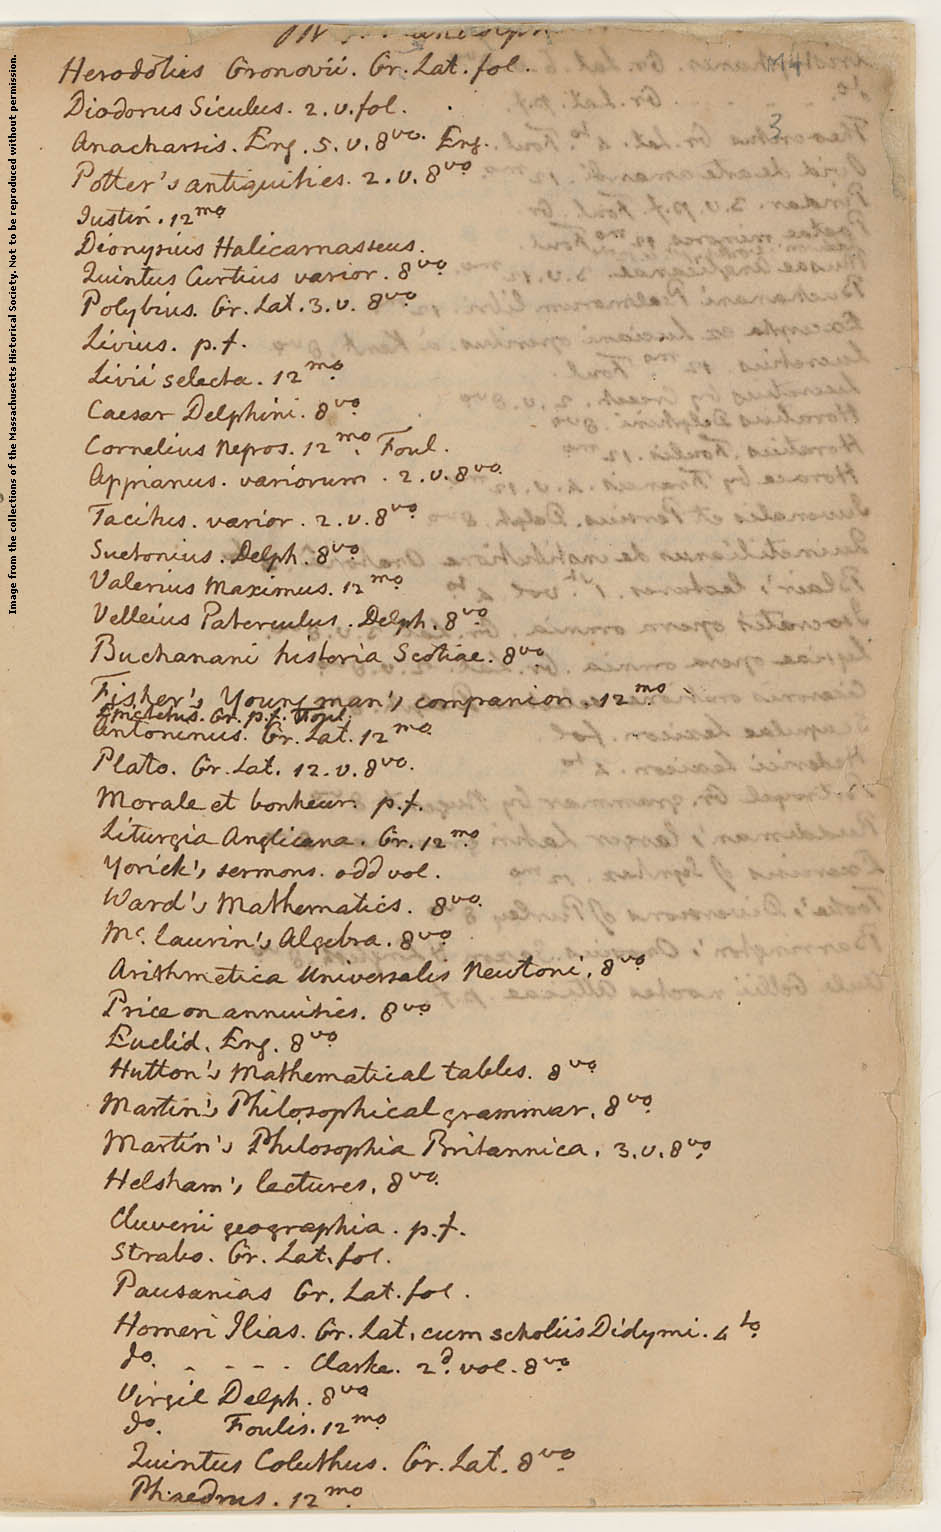 Image from the collections of the Massachusetts Historical Society. Not to be reproduced without permission.
M4
3
Herodotus Gronovii. Gr. Lat. fol.
Diodorus Siculus. 2. v. fol.
Anacharsis. Eng. 5. v. 8vo. Eng.
Potter's antiquities. 2. v. 8vo
Justin. 12mo
Dionysius Halicarnasseus.
Quintus Curtius varior. 8vo
Polybius. Gr. Lat. 3. v. 8vo
Livius. p. f.
Livii selecta. 12mo
Caesar Delphini. 8vo
Cornelius Nepos. 12mo Foul.
Appianus. variorum. 2. v. 8vo
Tacitus. varior. 2. v. 8vo
Suetonius. Delph. 8vo
Valerius Maximus. 12mo
Velleius Paterculus. Delph. 8vo
Buchanani historia Scotiae. 8vo
Fisher's Young man's companion. 12mo
Epictetus. Gr. p. f. Foul.
Antoninus. Gr. Lat. 12mo
Plato. Gr. Lat. 12. v. 8vo.
Morale et bonheur. p. f.
Liturgia Anglicana. Gr. 12mo
Yorick's sermons. odd vol.
Ward's Mathematics. 8vo.
Mc.laurin's Algebra. 8vo
Arithmetica Universalis Newtoni. 8vo
Price on annuities. 8vo
Euclid. Eng. 8vo
Hutton's Mathematical tables. 8vo
Martin's Philosophical grammar. 8vo
Martin's Philosophia Britannica. 3. v. 8vo
Helsham's lectures. 8vo
Cluverii geographia. p. f.
Strabo. Gr. Lat. fol.
Pausanias Gr. Lat. fol.
Homeri Ilias. Gr. Lat. cum scholiis Didymi. 4to
do. - - - - Clarke. 2d. vol. 8vo
Virgil Delph. 8vo
do. Foulis. 12mo
Quintus Coluthus. Gr. Lat. 8vo
Phaedrus. 12mo